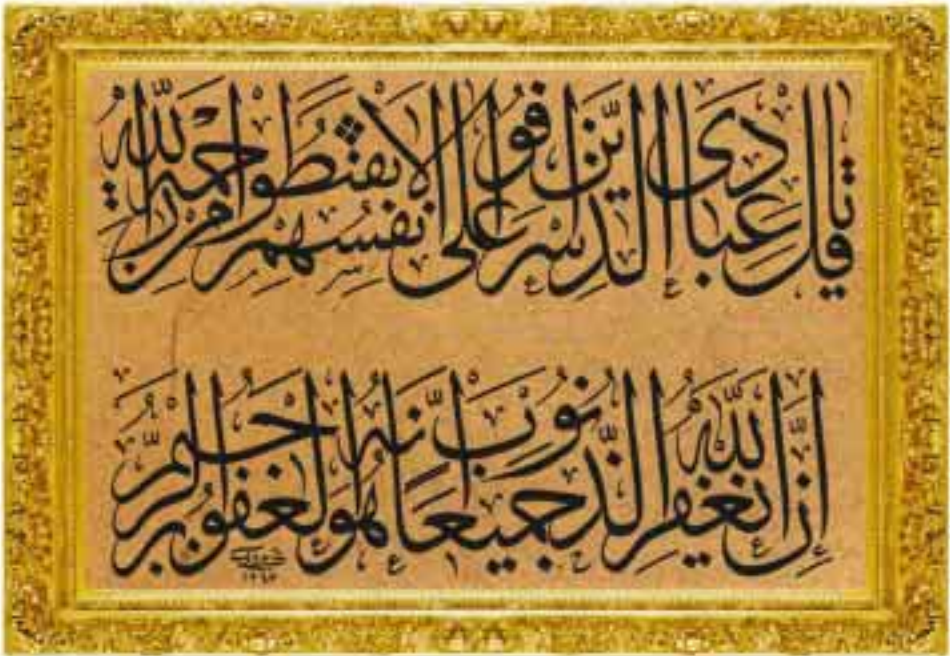 قل يا عبادي الذين اسرفوا على انفسهم لا تقنطوا من رحمة الله
إن الله يغفر الذنوب جميعا إنه هو الغفور الرحيم